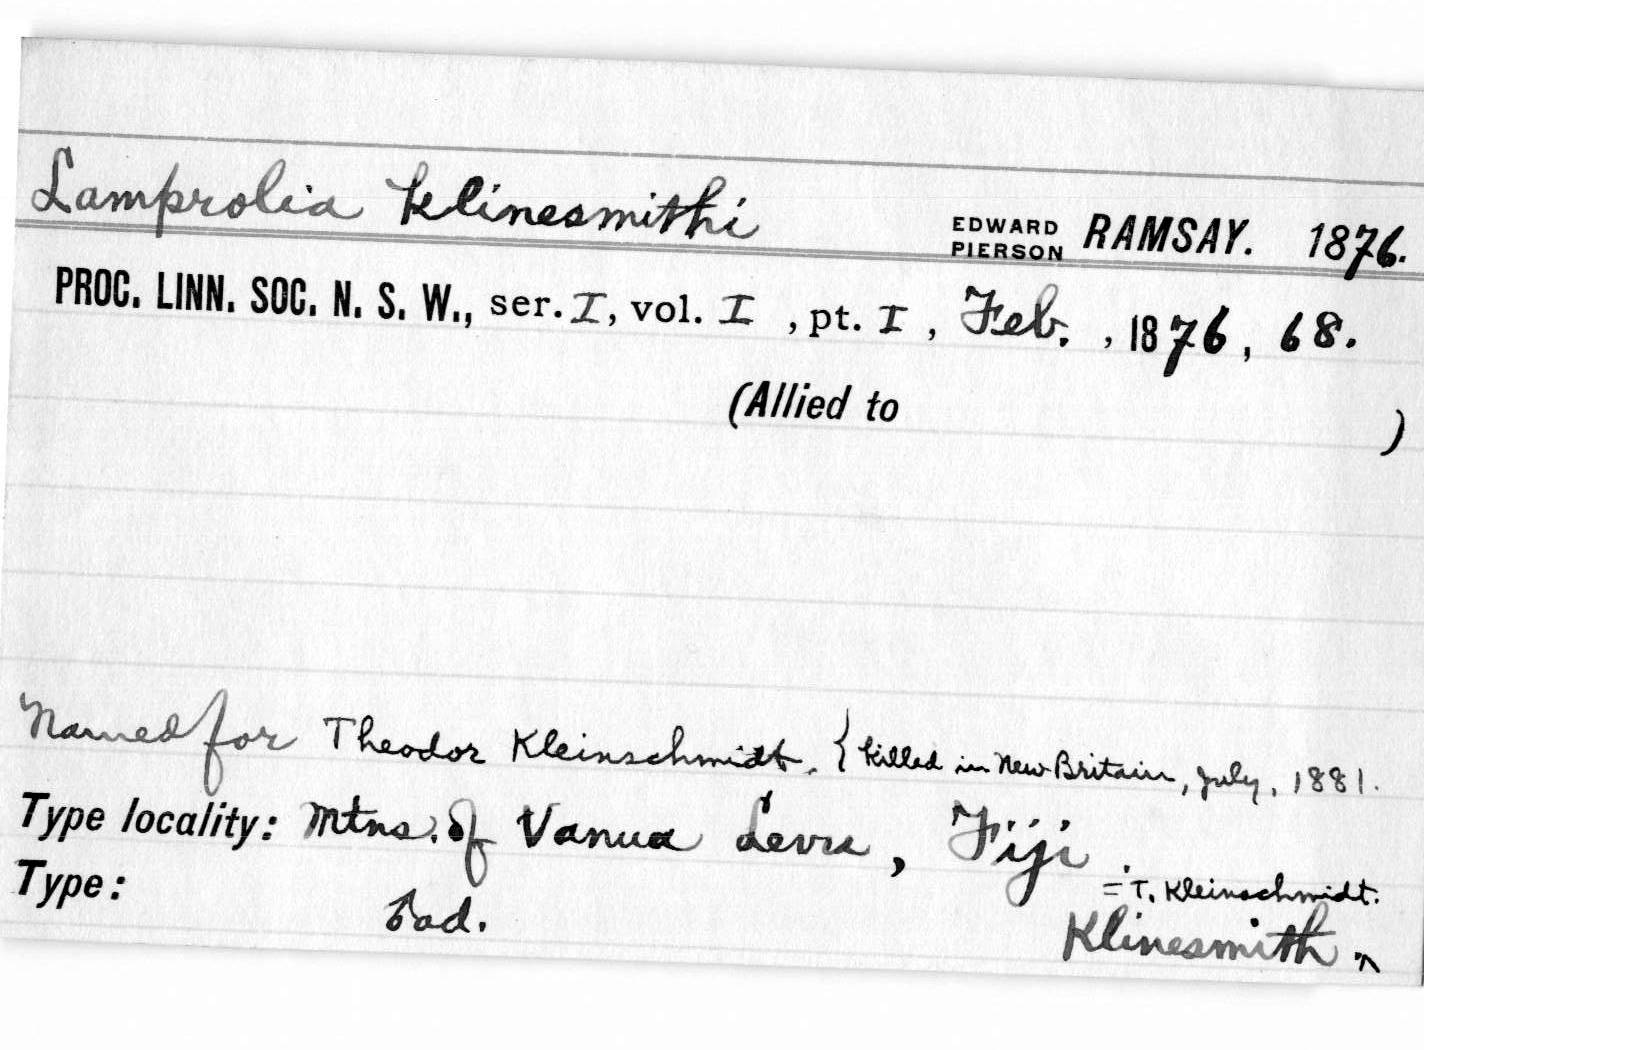 Lamprolia klinesmithi EDWARD PIERSON RAMSAY. 1876.
PROC. LINN. SOC. N. S. W., ser. I, vol. I , pt. I , Feb. , 1876, 68.
(Allied to )
Named for Theodor Kleinschmidt. { killed in New Britain, July, 1881.
Type locality: Mtns. of Vanua Levu, Fiji.
= T. Kleinschmidt.
Type: ♂ad. Klinesmith ^